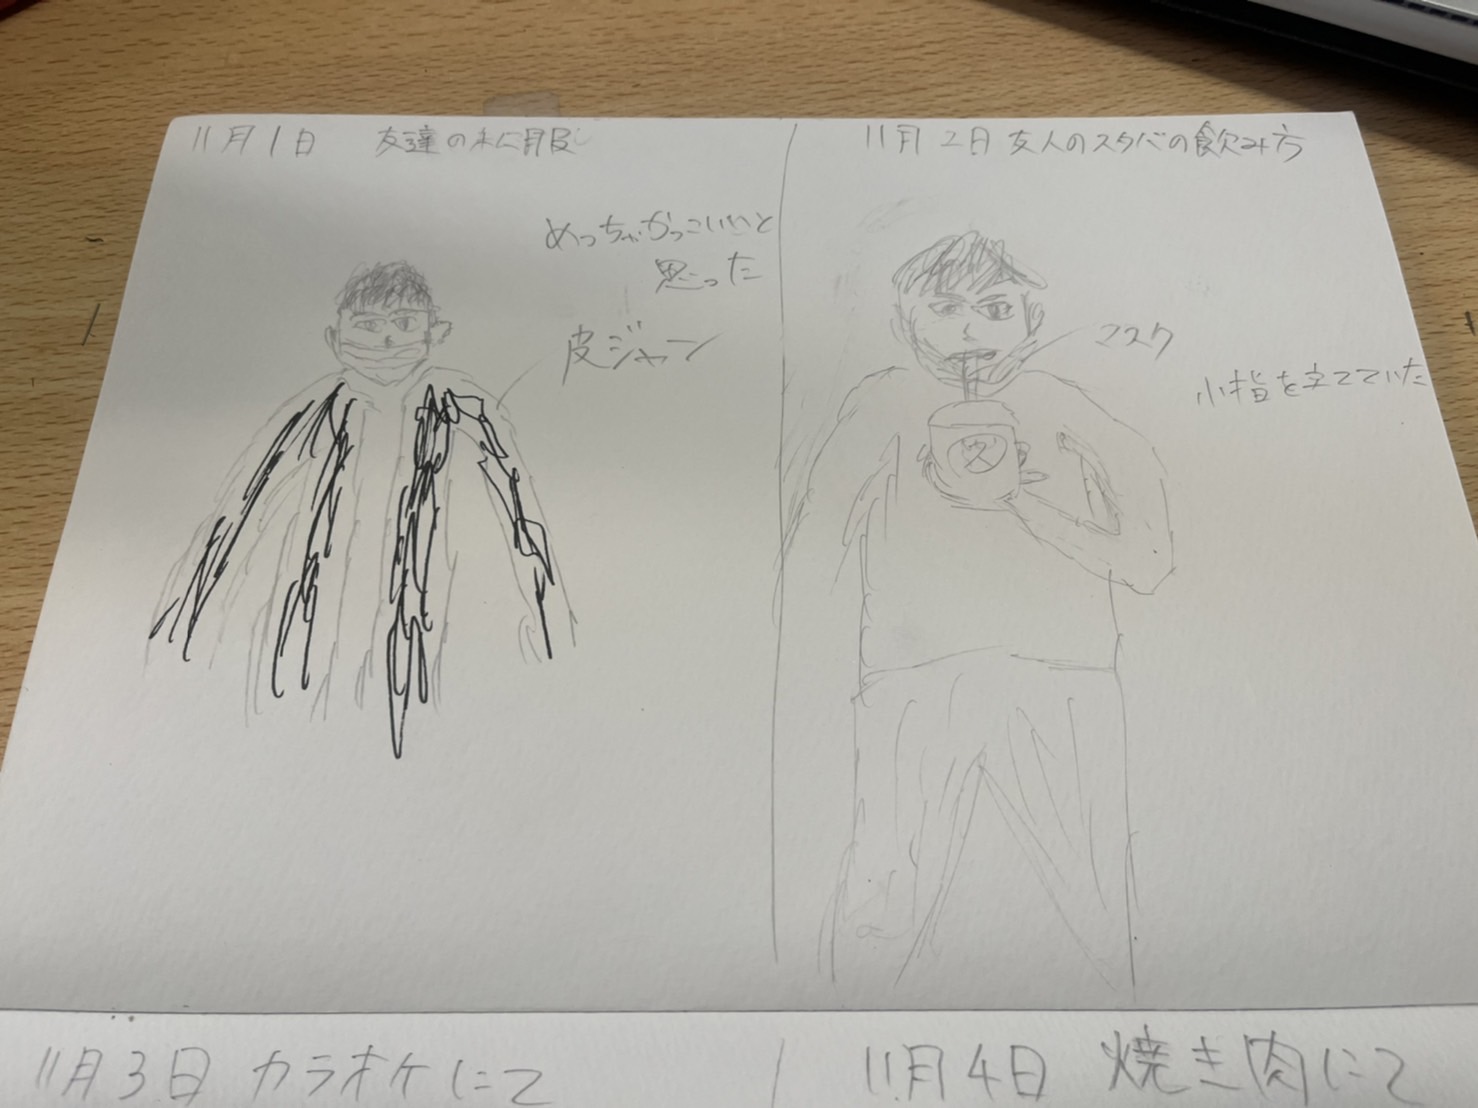 11月1日 友達の私服
めっちゃかっこいいと
思った
皮ジャン
11月2日 友人のスタバの飲み方
マスク
小指を立てていた
11月3日 カラオケにて
11月4日 焼き肉にて